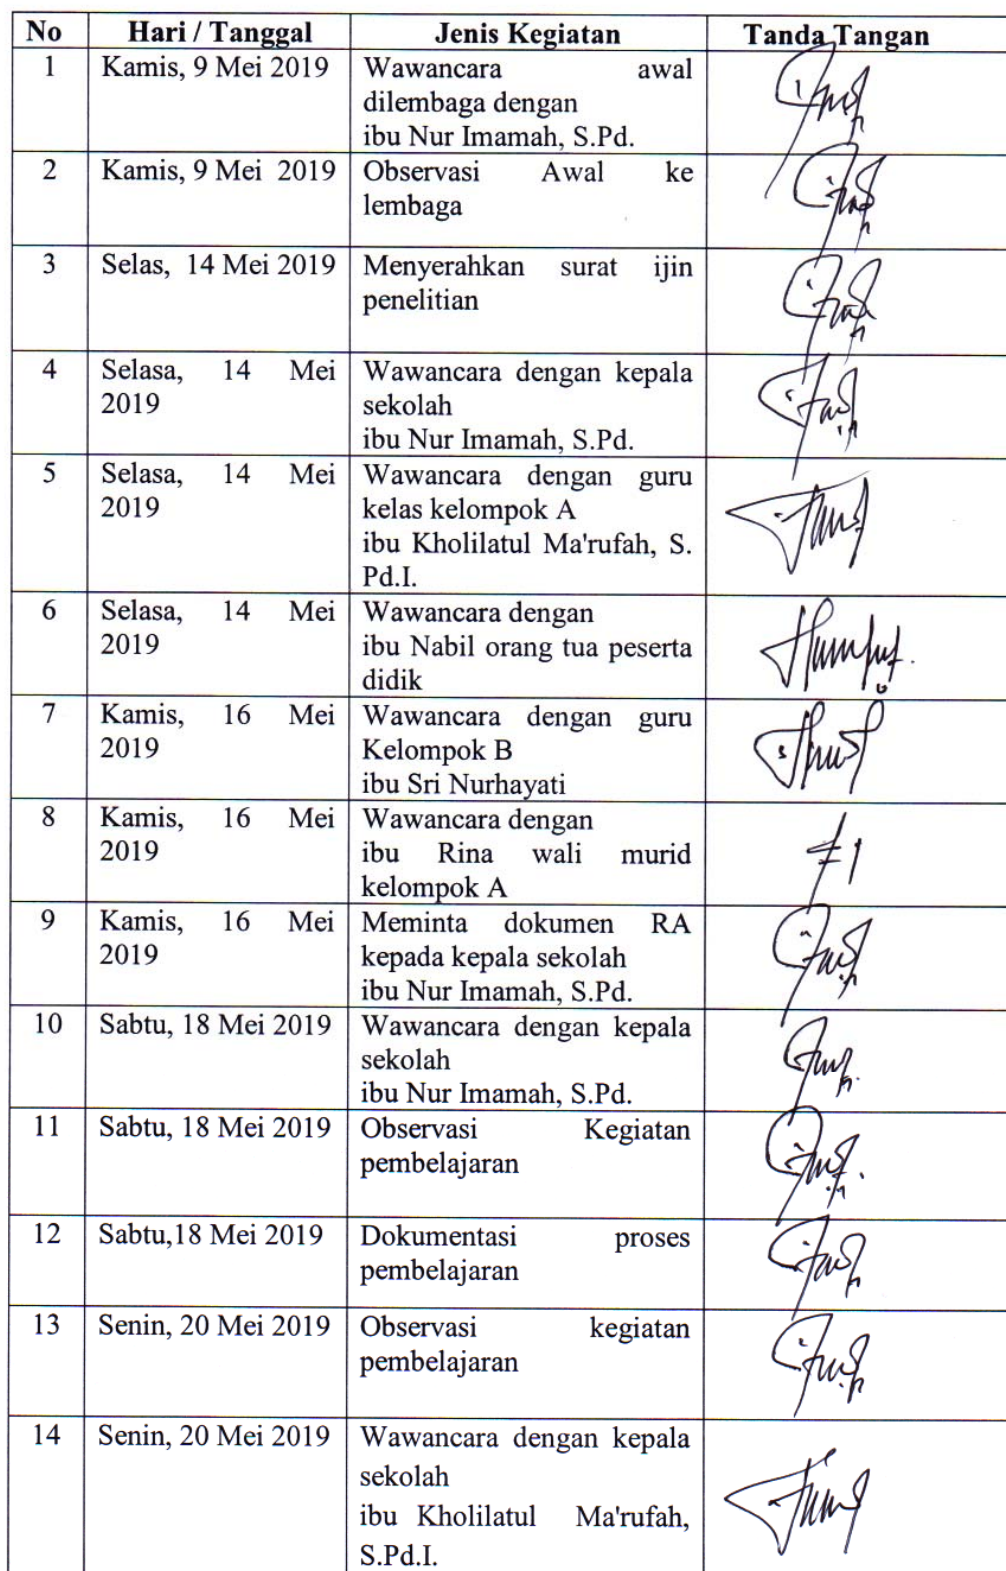 No Hari / Tanggal Jenis Kegiatan Tanda Tangan
1 Kamis, 9 Mei 2019 Wawancara awal
dilembaga dengan
ibu Nur Imamah, S.Pd.
2 Kamis, 9 Mei 2019 Observasi Awal ke
lembaga
3 Selas, 14 Mei 2019 Menyerahkan surat ijin
penelitian
4 Selasa, 14 Mei Wawancara dengan kepala
2019 sekolah
ibu Nur Imamah, S.Pd.
5 Selasa, 14 Mei Wawancara dengan guru
2019 kelas kelompok A
ibu Kholilatul Ma'rufah, S.
Pd.I.
6 Selasa, 14 Mei Wawancara dengan
2019 ibu Nabil orang tua peserta
didik
7 Kamis, 16 Mei Wawancara dengan guru
2019 Kelompok B
ibu Sri Nurhayati
8 Kamis, 16 Mei Wawancara dengan
2019 ibu Rina wali murid
kelompok A
9 Kamis, 16 Mei Meminta dokumen RA
2019 kepada kepala sekolah
ibu Nur Imamah, S.Pd.
10 Sabtu, 18 Mei 2019 Wawancara dengan kepala
sekolah
ibu Nur Imamah, S.Pd.
11 Sabtu, 18 Mei 2019 Observasi Kegiatan
pembelajaran
12 Sabtu,18 Mei 2019 Dokumentasi proses
pembelajaran
13 Senin, 20 Mei 2019 Observasi kegiatan
pembelajaran
14 Senin, 20 Mei 2019 Wawancara dengan kepala
sekolah
ibu Kholilatul Ma'rufah,
S.Pd.I.